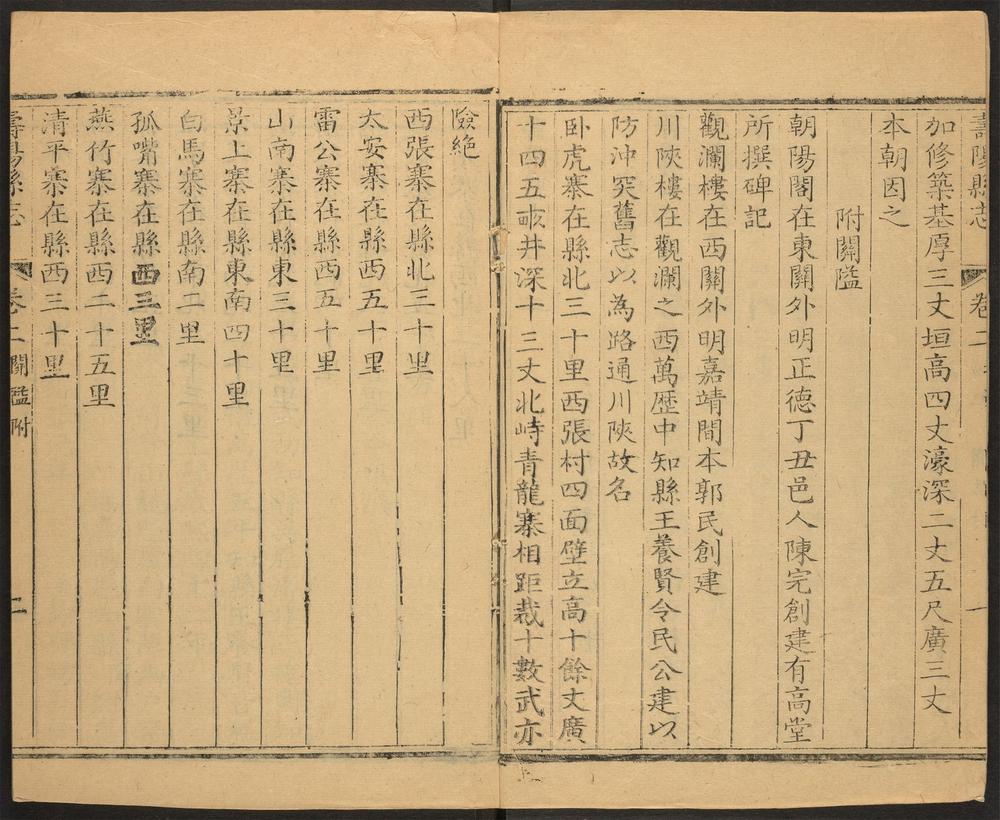 壽陽縣志 卷二 一
加修築基厚三丈垣高四丈濠深二丈五尺廣三丈
本朝因之
附關隘
朝陽閣在東關外明正德丁丑邑人陳完創建有高堂
所撰碑記
觀瀾樓在西關外明嘉靖間本郭民創建
川陝樓在觀瀾之西萬歷中知縣王養賢令民公建以
防沖突舊志以為路通川陝故名
卧虎寨在縣北三十里西張村四面壁立高十餘丈廣
十四五畝井深十三丈北峙青龍寨相距裁十數武亦
險絶
西張寨在縣北三十里
太安寨在縣西五十里
雷公寨在縣西五十里
山南寨在縣東三十里
景上寨在縣東南四十里
白馬寨在縣南二里
孤嘴寨在縣西三里
燕竹寨在縣西二十五里
清平寨在縣西三十里
壽陽縣志 卷二 關隘附 二